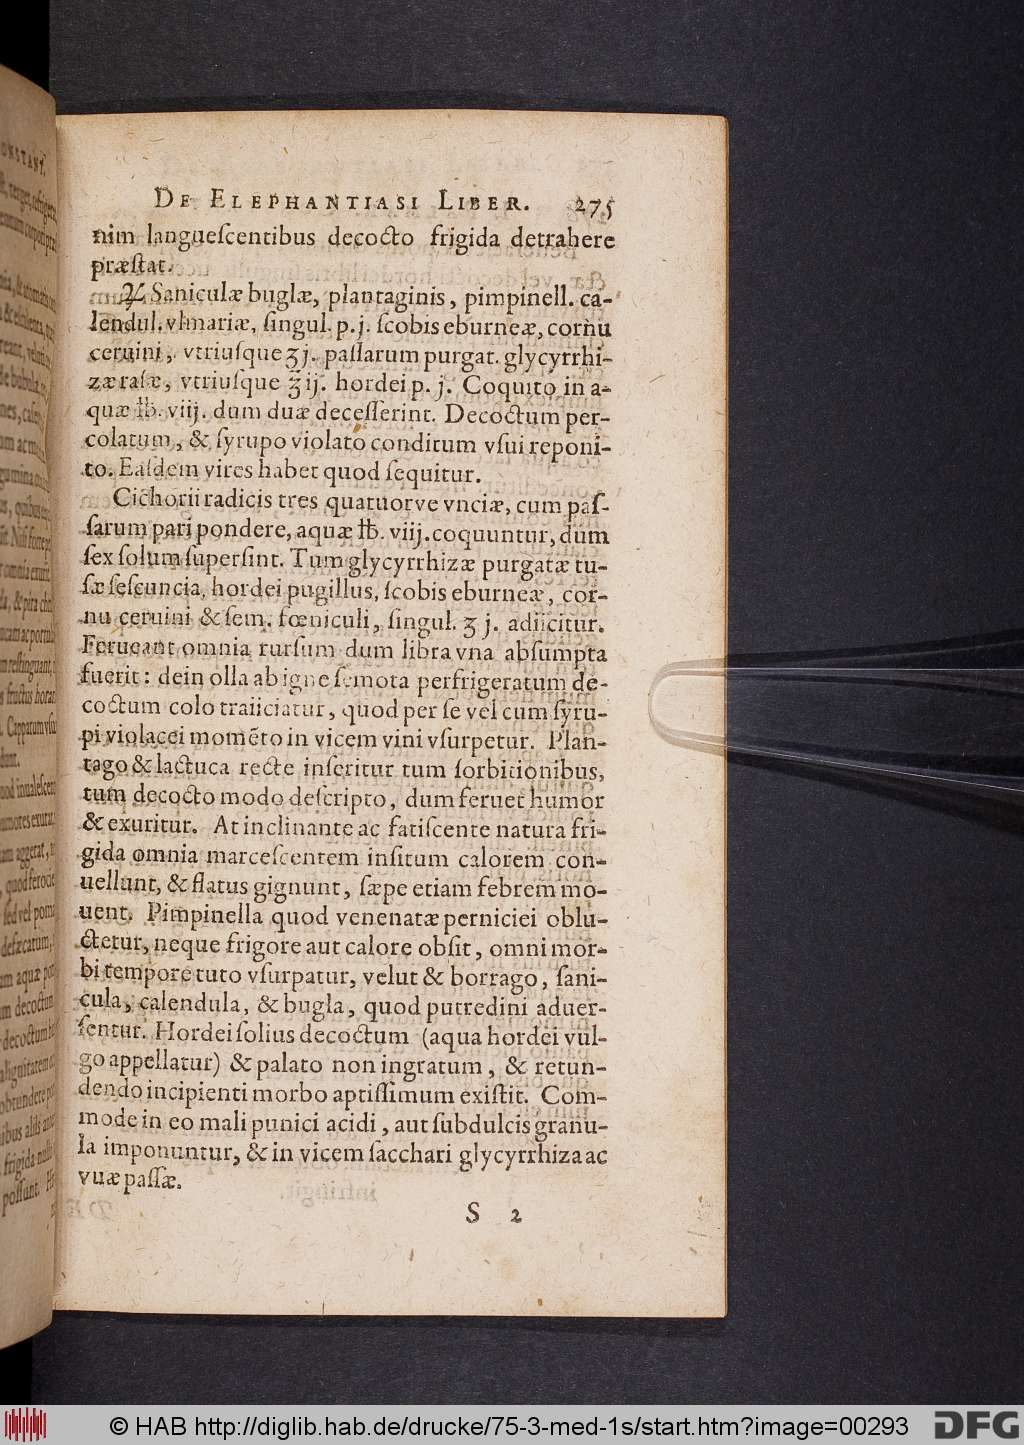 DE ELEPHANTIASI LIBER. 275
nim langueſcentibus decocto frigida detrahere
præſtat.
♃ Saniculæ buglæ, plantaginis, pimpinell. ca-
lendul. vlmariæ, ſingul. p. j. ſcobis eburneæ, cornu
ceruini, vtriuſque ʒ j. paſſarum purgat. glycyrrhi-
zæ raſæ, vtriuſque ℥ ij. hordei p. j. Coquito in a-
quæ ℔. viij. dum duæ deceſſerint. Decoctum per-
colatum, & ſyrupo violato conditum vſui reponi-
to. Eaſdem vires habet quod ſequitur.
Cichorii radicis tres quatuorve vnciæ, cum paſ-
ſarum pari pondere, aquæ ℔. viij. coquuntur, dum
ſex ſolum ſuperſint. Tum glycyrrhizæ purgatæ tu-
ſæ ſeſcuncia, hordei pugillus, ſcobis eburneæ, cor-
nu ceruini & ſem. fœniculi, ſingul. ʒ j. adiicitur.
Ferueant omnia rurſum dum libra vna abſumpta
fuerit: dein olla ab igne ſemota perfrigeratum de-
coctum colo traiiciatur, quod per ſe vel cum ſyru-
pi violacei momẽto in vicem vini vſurpetur. Plan-
tago & lactuca recte inſeritur tum ſorbitionibus,
tum decocto modo deſcripto, dum feruet humor
& exuritur. At inclinante ac fatiſcente natura fri-
gida omnia marceſcentem inſitum calorem con-
uellunt, & flatus gignunt, ſæpe etiam febrem mo-
uent. Pimpinella quod venenatæ perniciei oblu-
ctetur, neque frigore aut calore obſit, omni mor-
bi tempore tuto vſurpatur, velut & borrago, ſani-
cula, calendula, & bugla, quod putredini aduer-
ſentur. Hordei ſolius decoctum (aqua hordei vul-
go appellatur) & palato non ingratum, & retun-
dendo incipienti morbo aptiſſimum exiſtit. Com-
mode in eo mali punici acidi, aut ſubdulcis granu-
la imponuntur, & in vicem ſacchari glycyrrhiza ac
vuæ paſſæ.
S 2
© HAB http://diglib.hab.de/drucke/75-3-med-1s/start.htm?image=00293
DFG